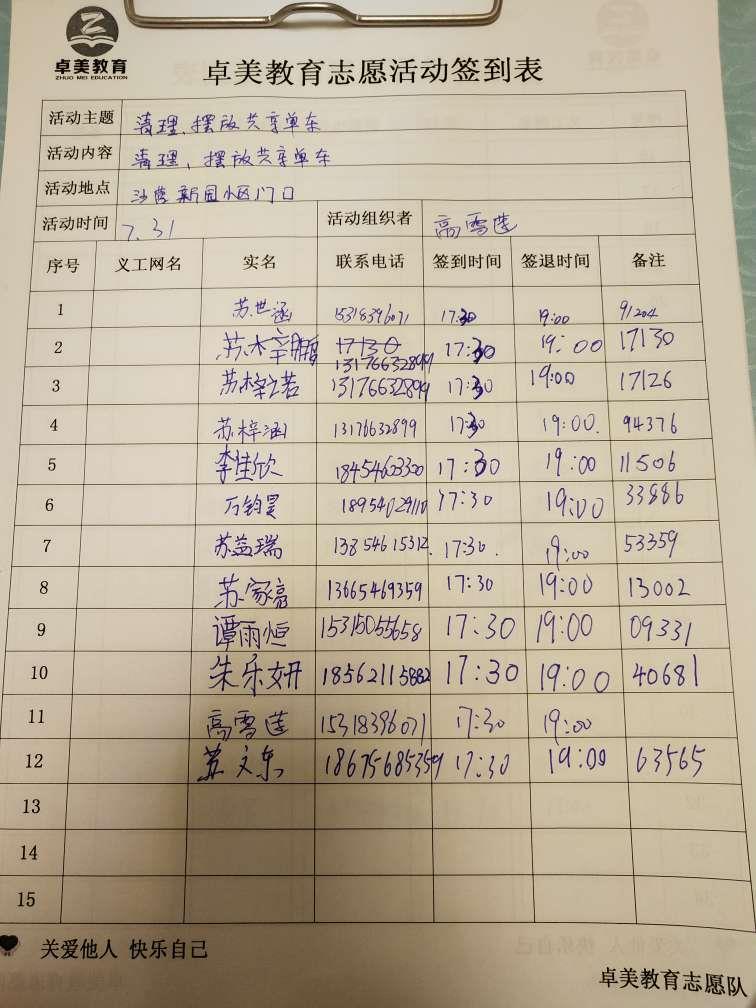 卓美教育
ZHUO MEI EDUCATION
卓美教育志愿活动签到表
活动主题 清理、摆放共享单车
活动内容 清理，摆放共享单车
活动地点 沙营新园小区门口
活动时间 7.31 活动组织者 高雪莲
序号 义工网名 实名 联系电话 签到时间 签退时间 备注
1 苏世涵 15318396071 17:30 19:00 91204
2 17130 13176632899 17:30 19:00 17130
3 苏梓若 13176632899 17:30 19:00 17126
4 苏梓涵 13176632899 17:30 19:00. 94376
5 李佳欣 18454603300 17:30 19:00 11506
6 万钧昊 18954029110 17:30 19:00 33886
7 苏益瑞 13854615312. 17:30. 19:00 53359
8 苏家嘉 13665469359 17:30 19:00 13002
9 谭雨恒 15315055658 17:30 19:00 09331
10 朱乐妍 18562115882 17:30 19:00 40681
11 高雪莲 15318396071 17:30 19:00
12 苏文东 18675685359 17:30 19:00 63565
13
14
15
关爱他人 快乐自己
卓美教育志愿队